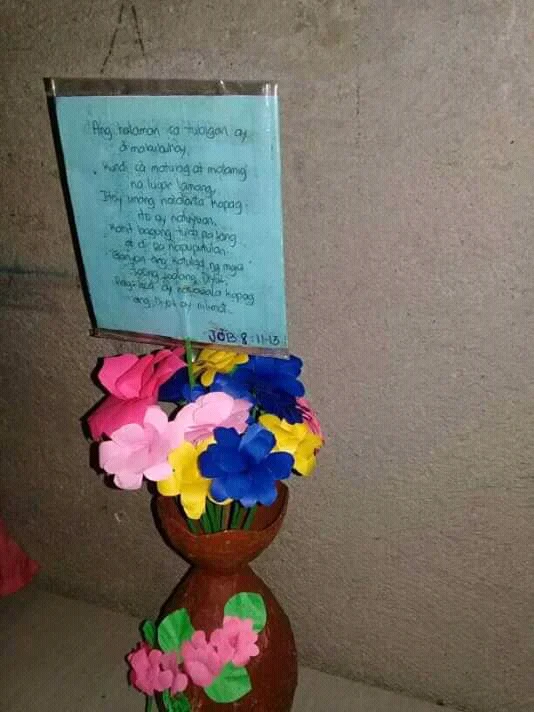 Ang halaman sa tubigan ay
di mabubuhay,
Kundi sa matubig at malamig
na lugar lamang,
Ito'y unang nalalanta kapag
ito ay natuyuan,
Kahit bagong tubo pa lang
at di pa napuputulan.
Ganyan ang katulad ng mga
taong walang Diyos,
Pag-asa ay nawawala kapag
ang Diyos ay nilimot.
JOB 8:11-13